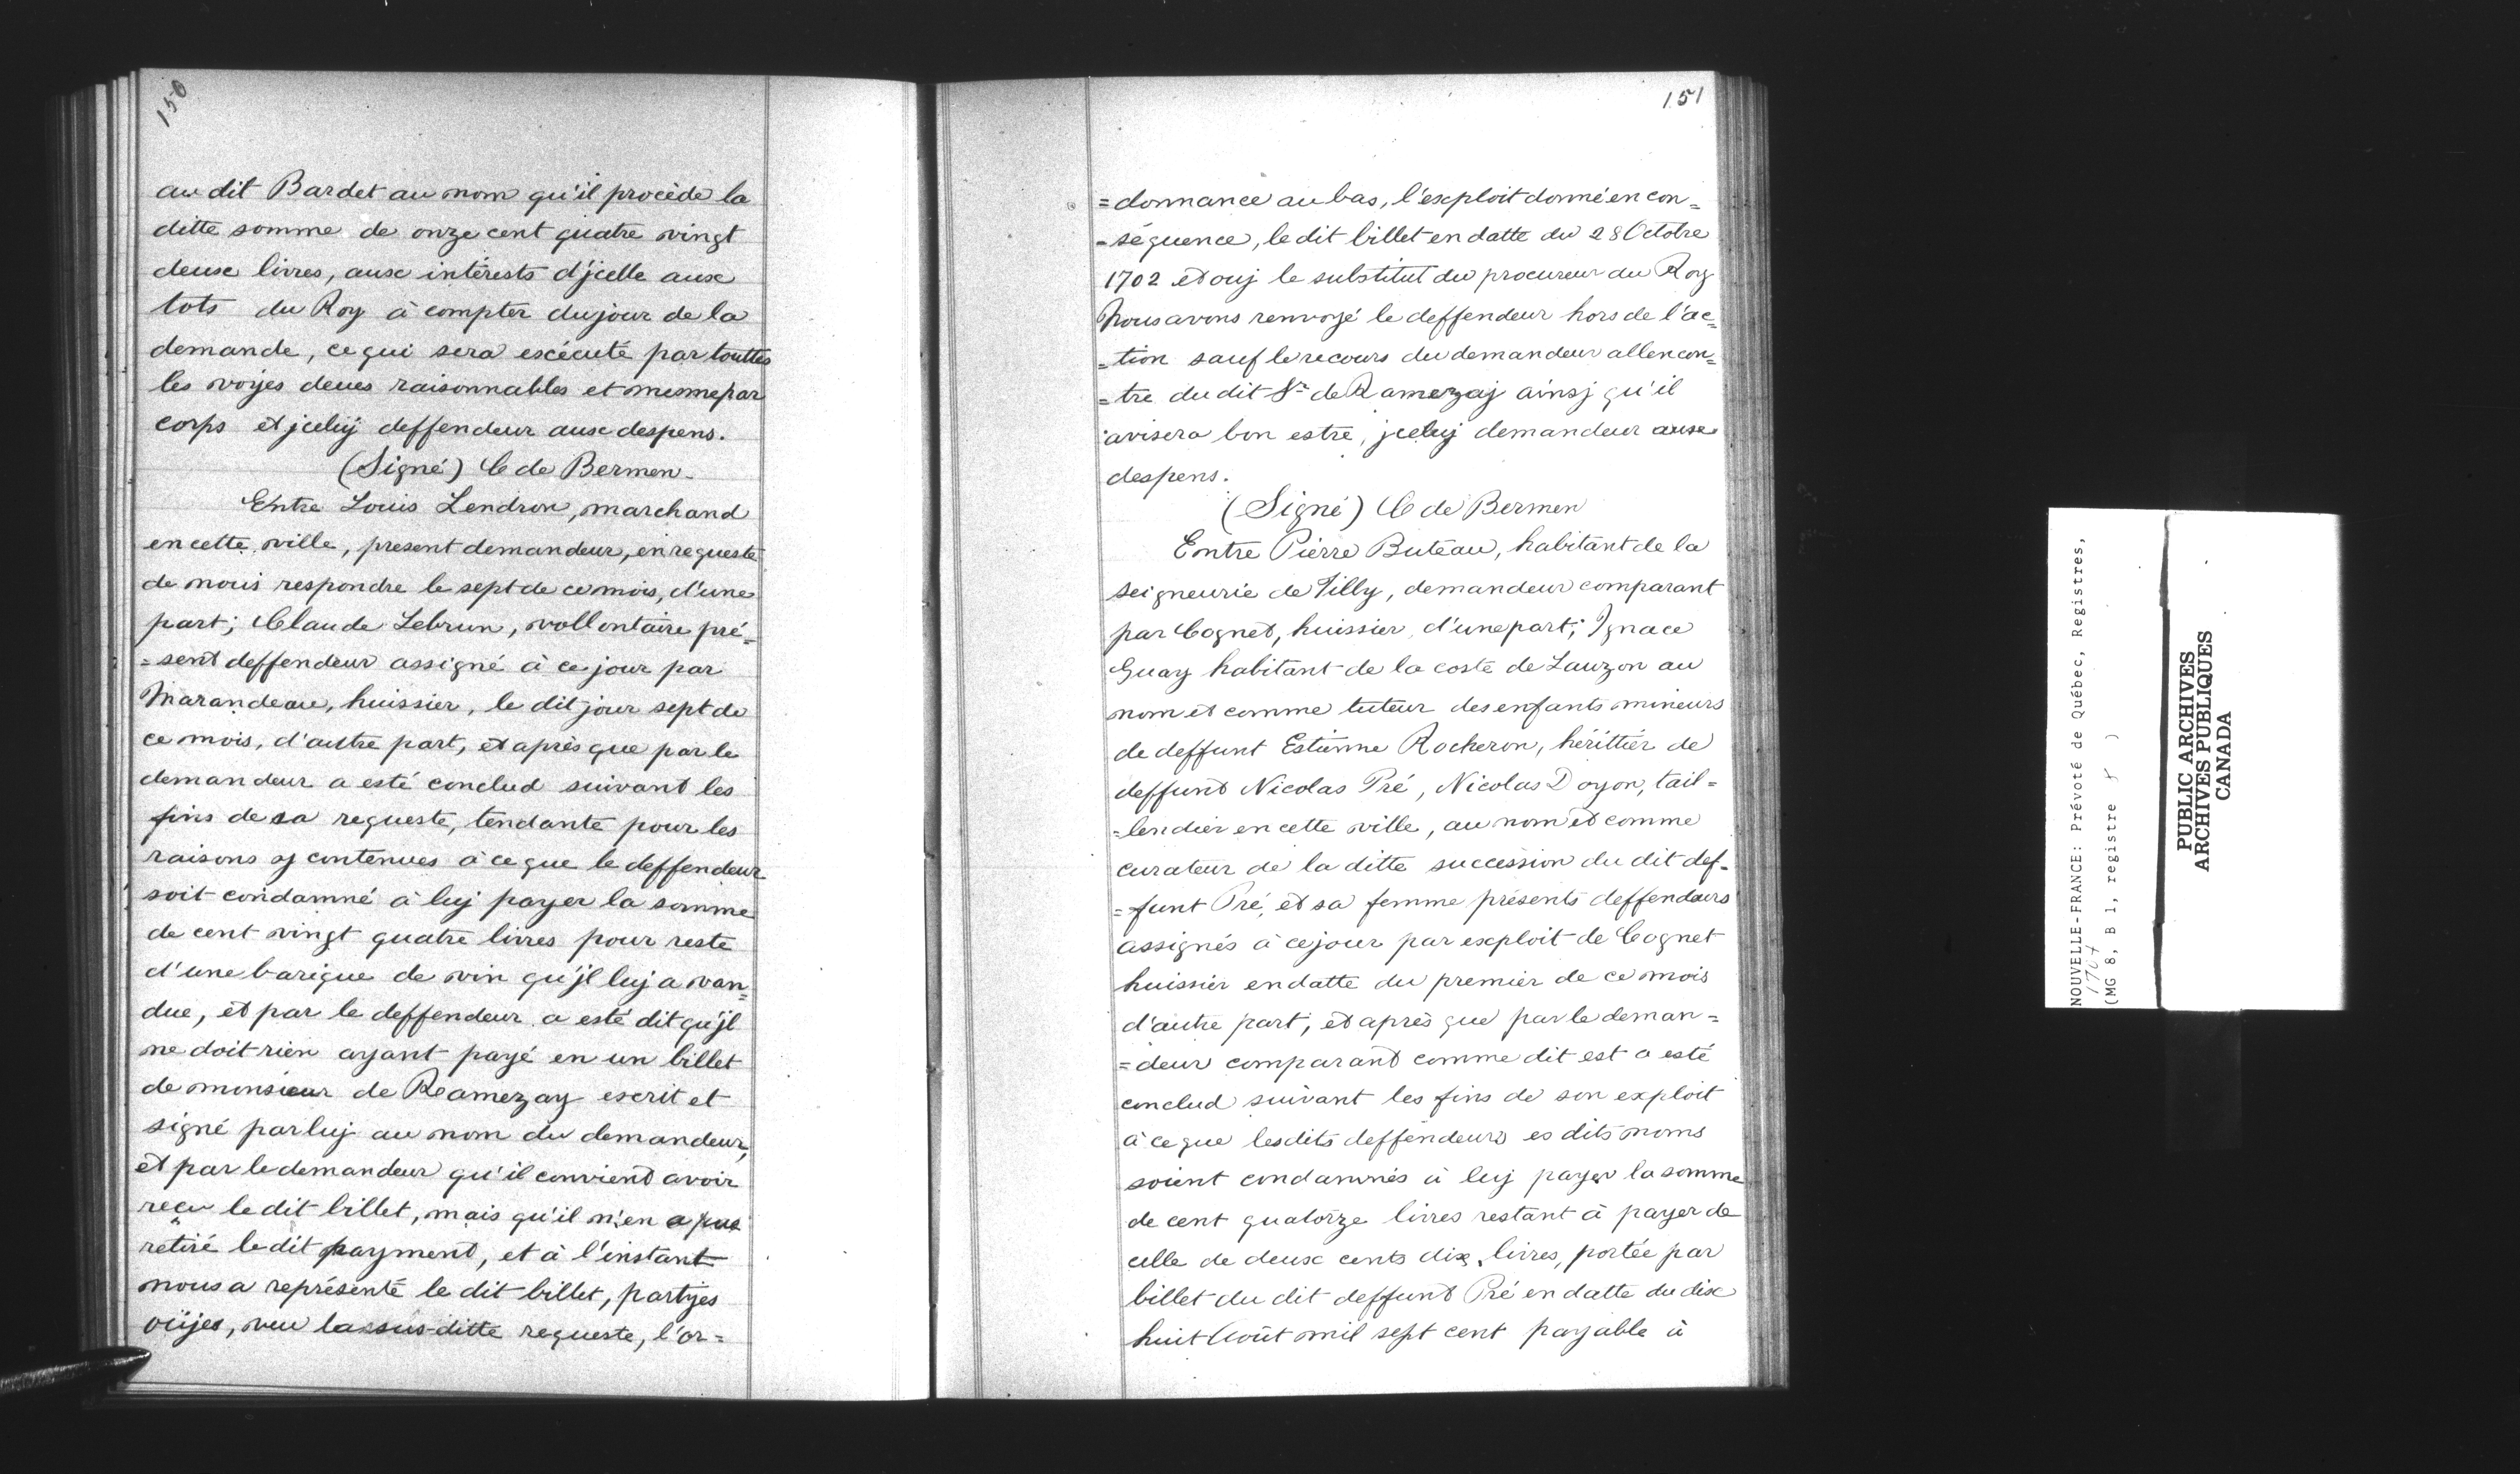 150
au dit Bardet au nom qu'il procède la
ditte somme de onze cent quatre vingt
deux livres, aux intérests d'jcelle aux
tots du Roy à compter du jour de la
demande, ce qui sera exécuté par touttes
les voyes deues raisonnables et mesme par
corps et jceluj deffendeur aux despens.
(Signé) C de Bermen.
Entre Louis Lendron, marchand
en cette ville, present demandeur, en requeste
de nous respondre le sept de ce mois, d'une
part; Claude Lebrun, vollontaire pré-
=sent deffendeur assigné à ce jour par
Marandeau, huissier, le dit jour sept de
ce mois, d'autre part, et après que par le
demandeur a esté conclud suivant les
fins de sa requeste, tendante pour les
raisons y contenues à ce que le deffendeur
soit condamné à luj payer la somme
de cent vingt quatre livres pour reste
d'une barique de vin qu'jl luj a van=
due, et par le deffendeur a esté dit qu'jl
ne doit rien ayant payé en un billet
de monsieur de Ramezay escrit et
signé par luj au nom du demandeur,
et par le demandeur qu'il convient avoir
reçu le dit billet, mais qu'il n'en a pue
retiré le dit payment, et à l'instant
nous a représenté le dit billet, partyes
oüjes, veu la sus-ditte requeste, l'or=
151
=donnance au bas, l'exploit donné en con=
=séquence, le dit billet en datte du 28 Octobre
1702 et ouj le substitut du procureur du Roy
Nous avons renvoyé le deffendeur hors de l'ac=
=tion sauf le recours du demandeur allencon=
=tre du dit Sr de Ramezaj ainsj qu'il
avisera bon estre, jceluj demandeur aux
despens.
(Signé) C de Bermen
Entre Pierre Buteau, habitant de la
seigneurie de Tilly, demandeur comparant
par Cognet, huissier, d'une part; Ignace
Guay habitant de la coste de Lauzon au
nom et comme tuteur des enfants mineurs
de deffunt Estienne Rocheron, hérittier de
deffunt Nicolas Pré, Nicolas Doyon, tail=
=lendier en cette ville, au nom et comme
curateur de la ditte succession du dit def=
=funt Pré, et sa femme présents deffendeurs
assignés à ce jour par exploit de Cognet
huissier en datte du premier de ce mois
d'autre part; et après que par le deman=
=deur comparant comme dit est a esté
conclud suivant les fins de son exploit
à ce que lesdits deffendeurs es dits noms
soient condamnés à luj payer la somme
de cent quatorze livres restant à payer de
celle de deux cents dix livres, portée par
billet du dit deffunt Pré en datte du dix
huit Août mil sept cent payable à
NOUVELLE-FRANCE: Prévoté de Québec, Registres,
1707
(MG 8, B 1, registre 5 )
PUBLIC ARCHIVES
ARCHIVES PUBLIQUES
CANADA